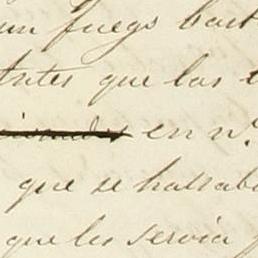 un fuego bast
Antes que las t
en n.º
que se hallaba
que les servia